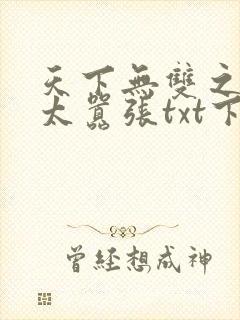 天下無雙之
太囂張txt下
曾經想成神